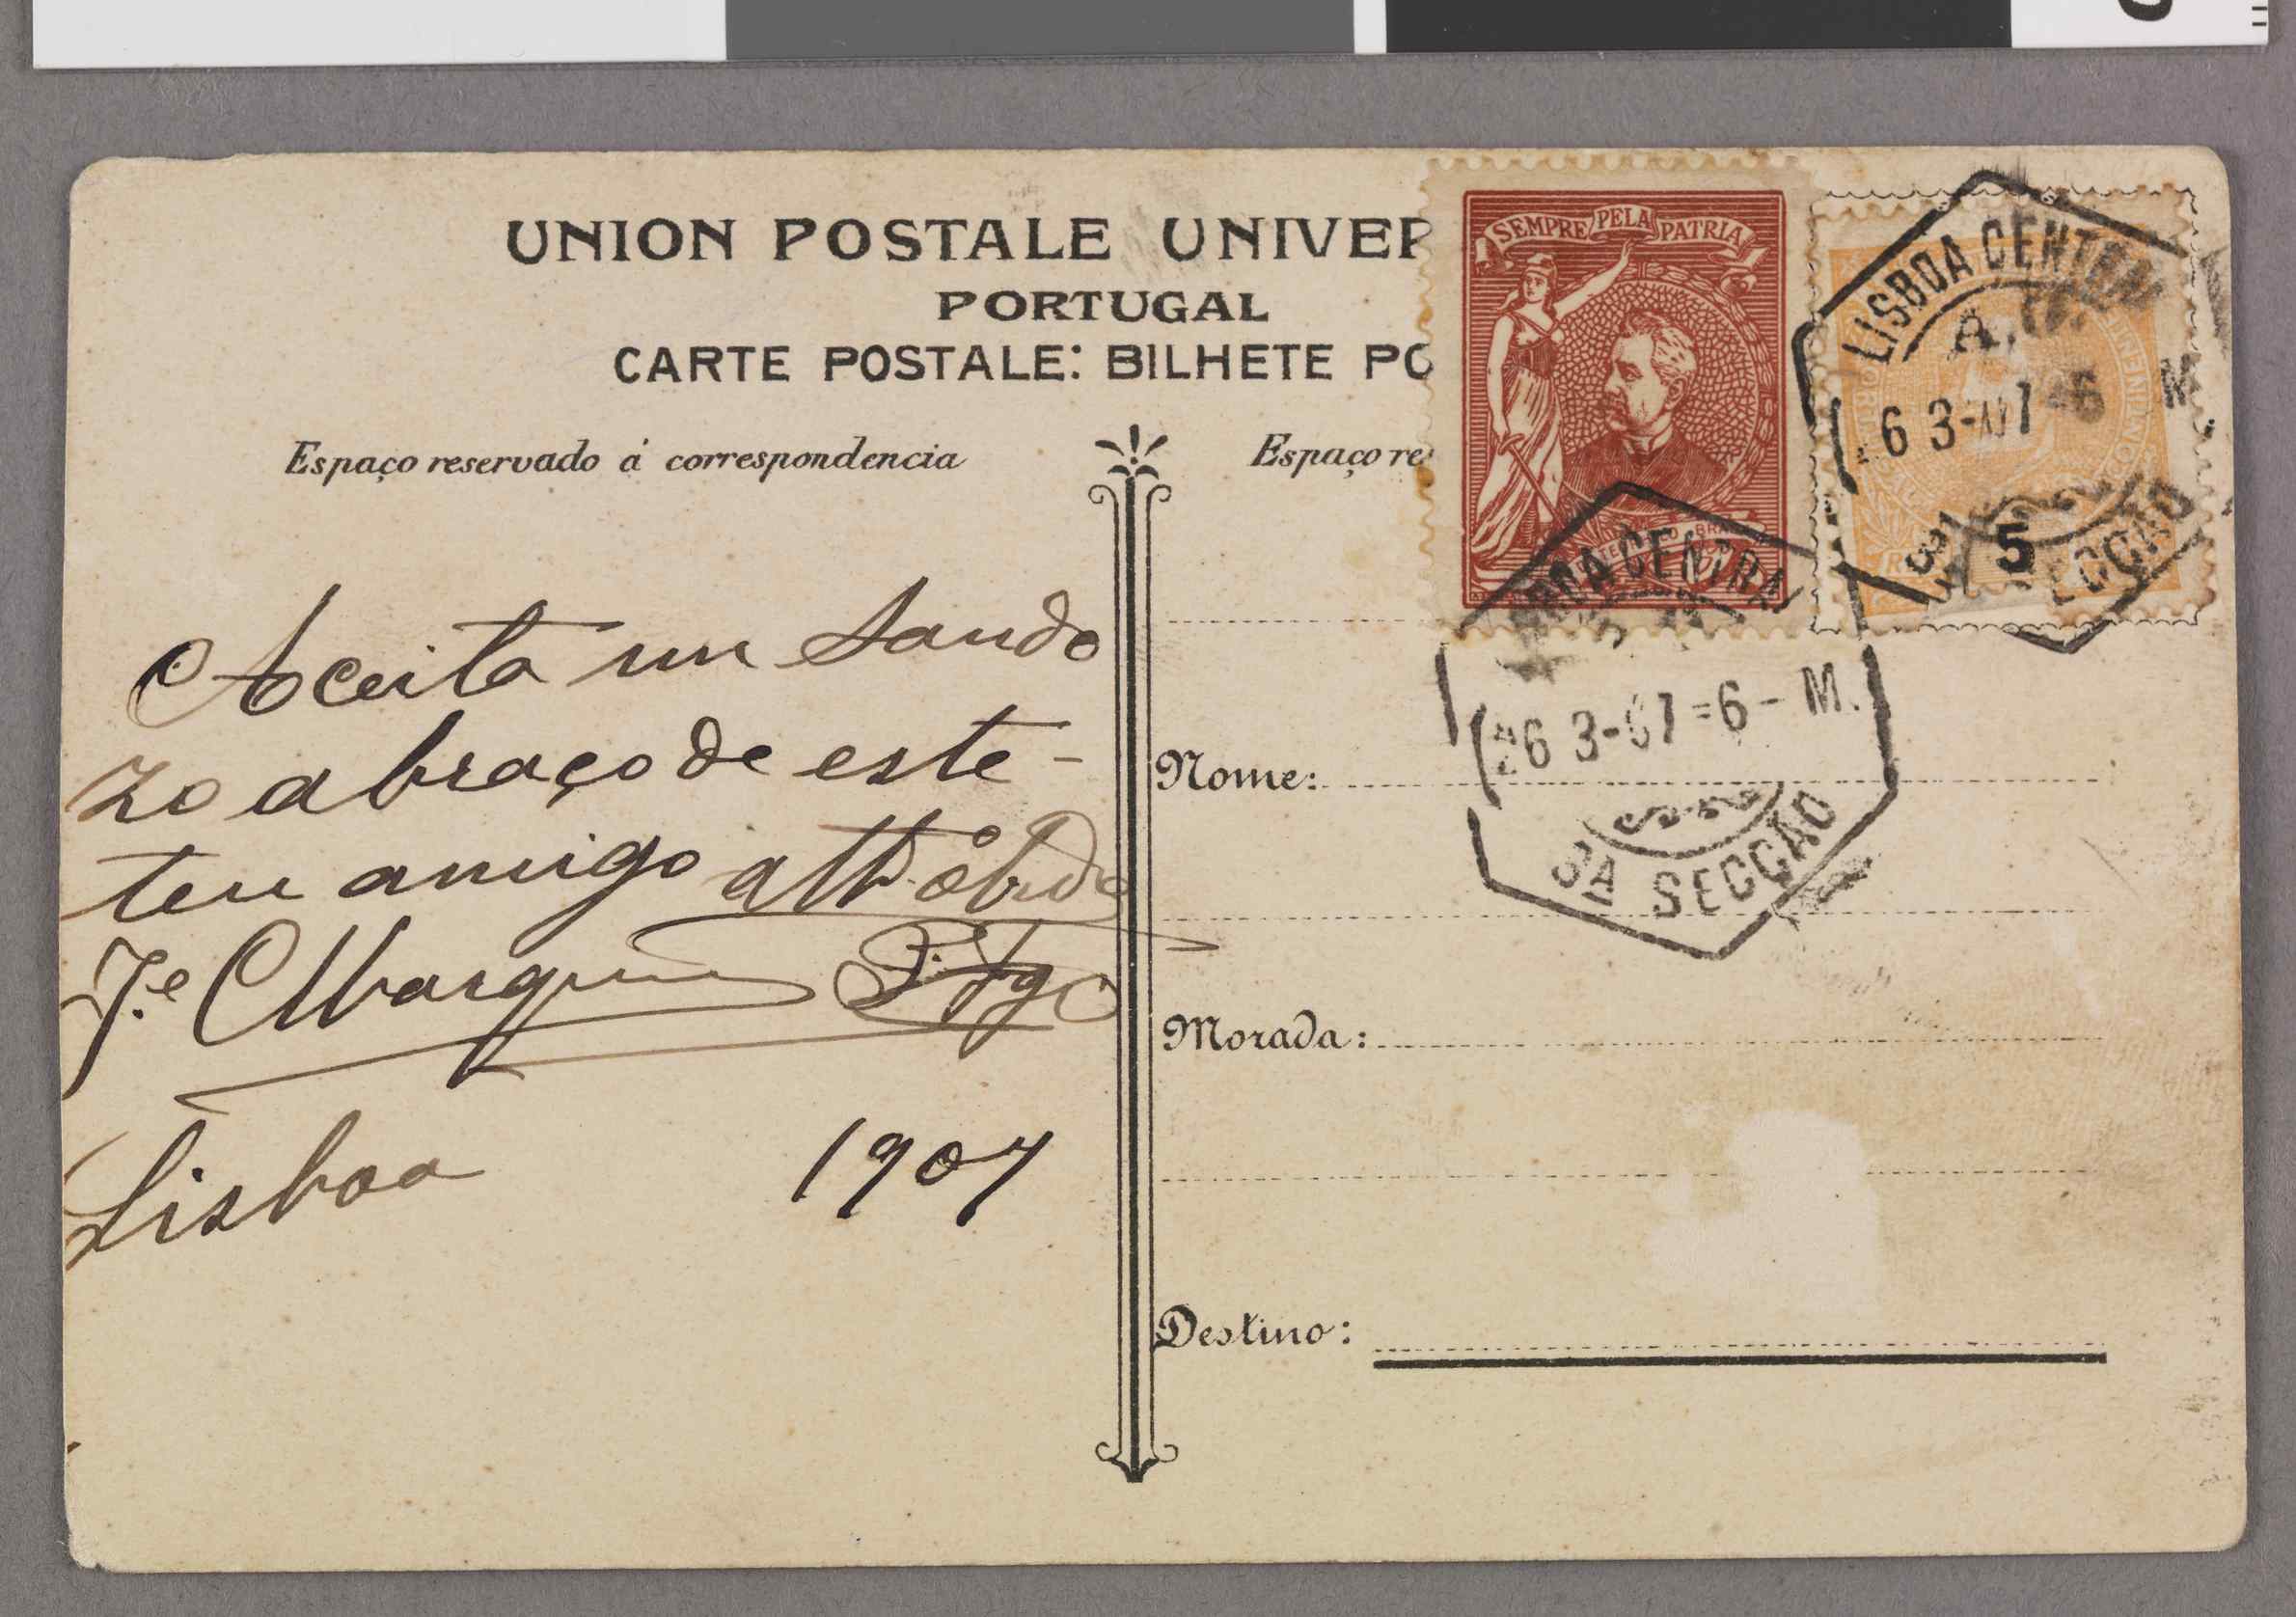 UNION POSTALE UNIVER
PORTUGAL
CARTE POSTALE: BILHETE PO
Espaço reservado á correspondencia
Espaço re
SEMPRE PELA PATRIA
LISBOA CENTRAL
6 3-
5
SECÇÃO
CENTRA
26 3-07=6-M.
SECÇÃO
Aceita um saudo
zo abraço de este
teu amigo att.º
J.e Marques
Lisboa 1907
Nome:
Morada:
Destino: